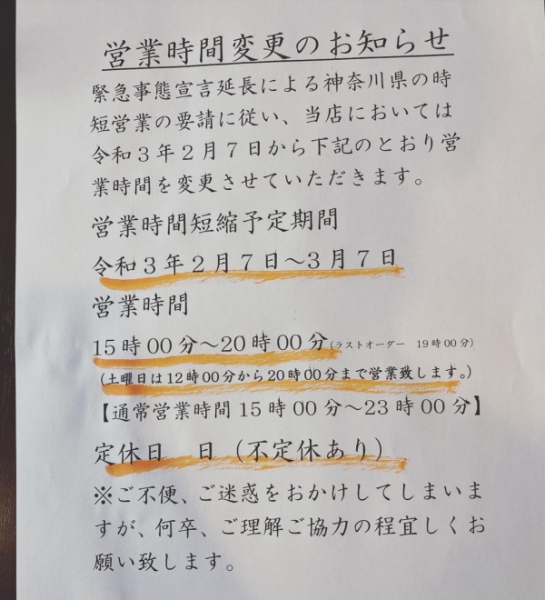 営業時間変更のお知らせ
緊急事態宣言延長による神奈川県の時
短営業の要請に従い、当店においては
令和３年２月７日から下記のとおり営
業時間を変更させていただきます。
営業時間短縮予定期間
令和３年２月７日～３月７日
営業時間
15時00分～20時00分(ラストオーダー　19時00分)
(土曜日は12時00分から20時00分まで営業致します。)
【通常営業時間15時00分～23時00分】
定休日　日（不定休あり）
※ご不便、ご迷惑をおかけしてしまいま
すが、何卒、ご理解ご協力の程宜しくお
願い致します。